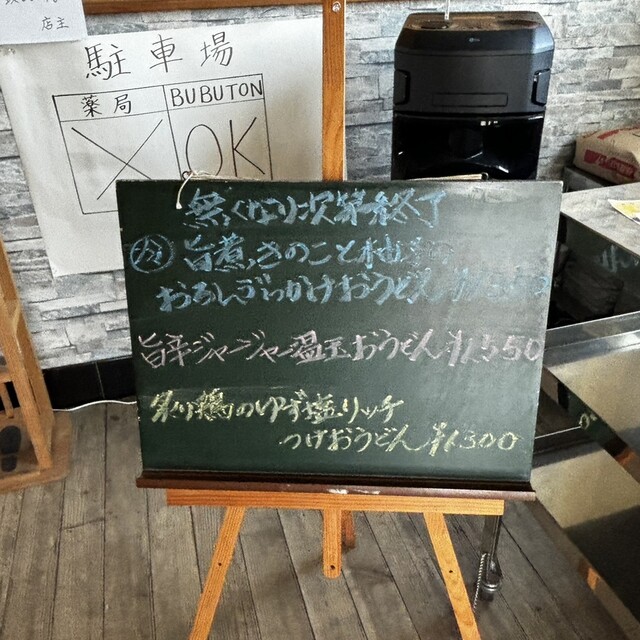 店主
駐車場
薬局 BUBUTON
OK
無くなり次第終了
旨煮きのこと
おろしぶっかけおうどん
旨辛ジャージャー温玉おうどん ¥1350
鶏のゆず塩リッチ
つけおうどん ¥1300